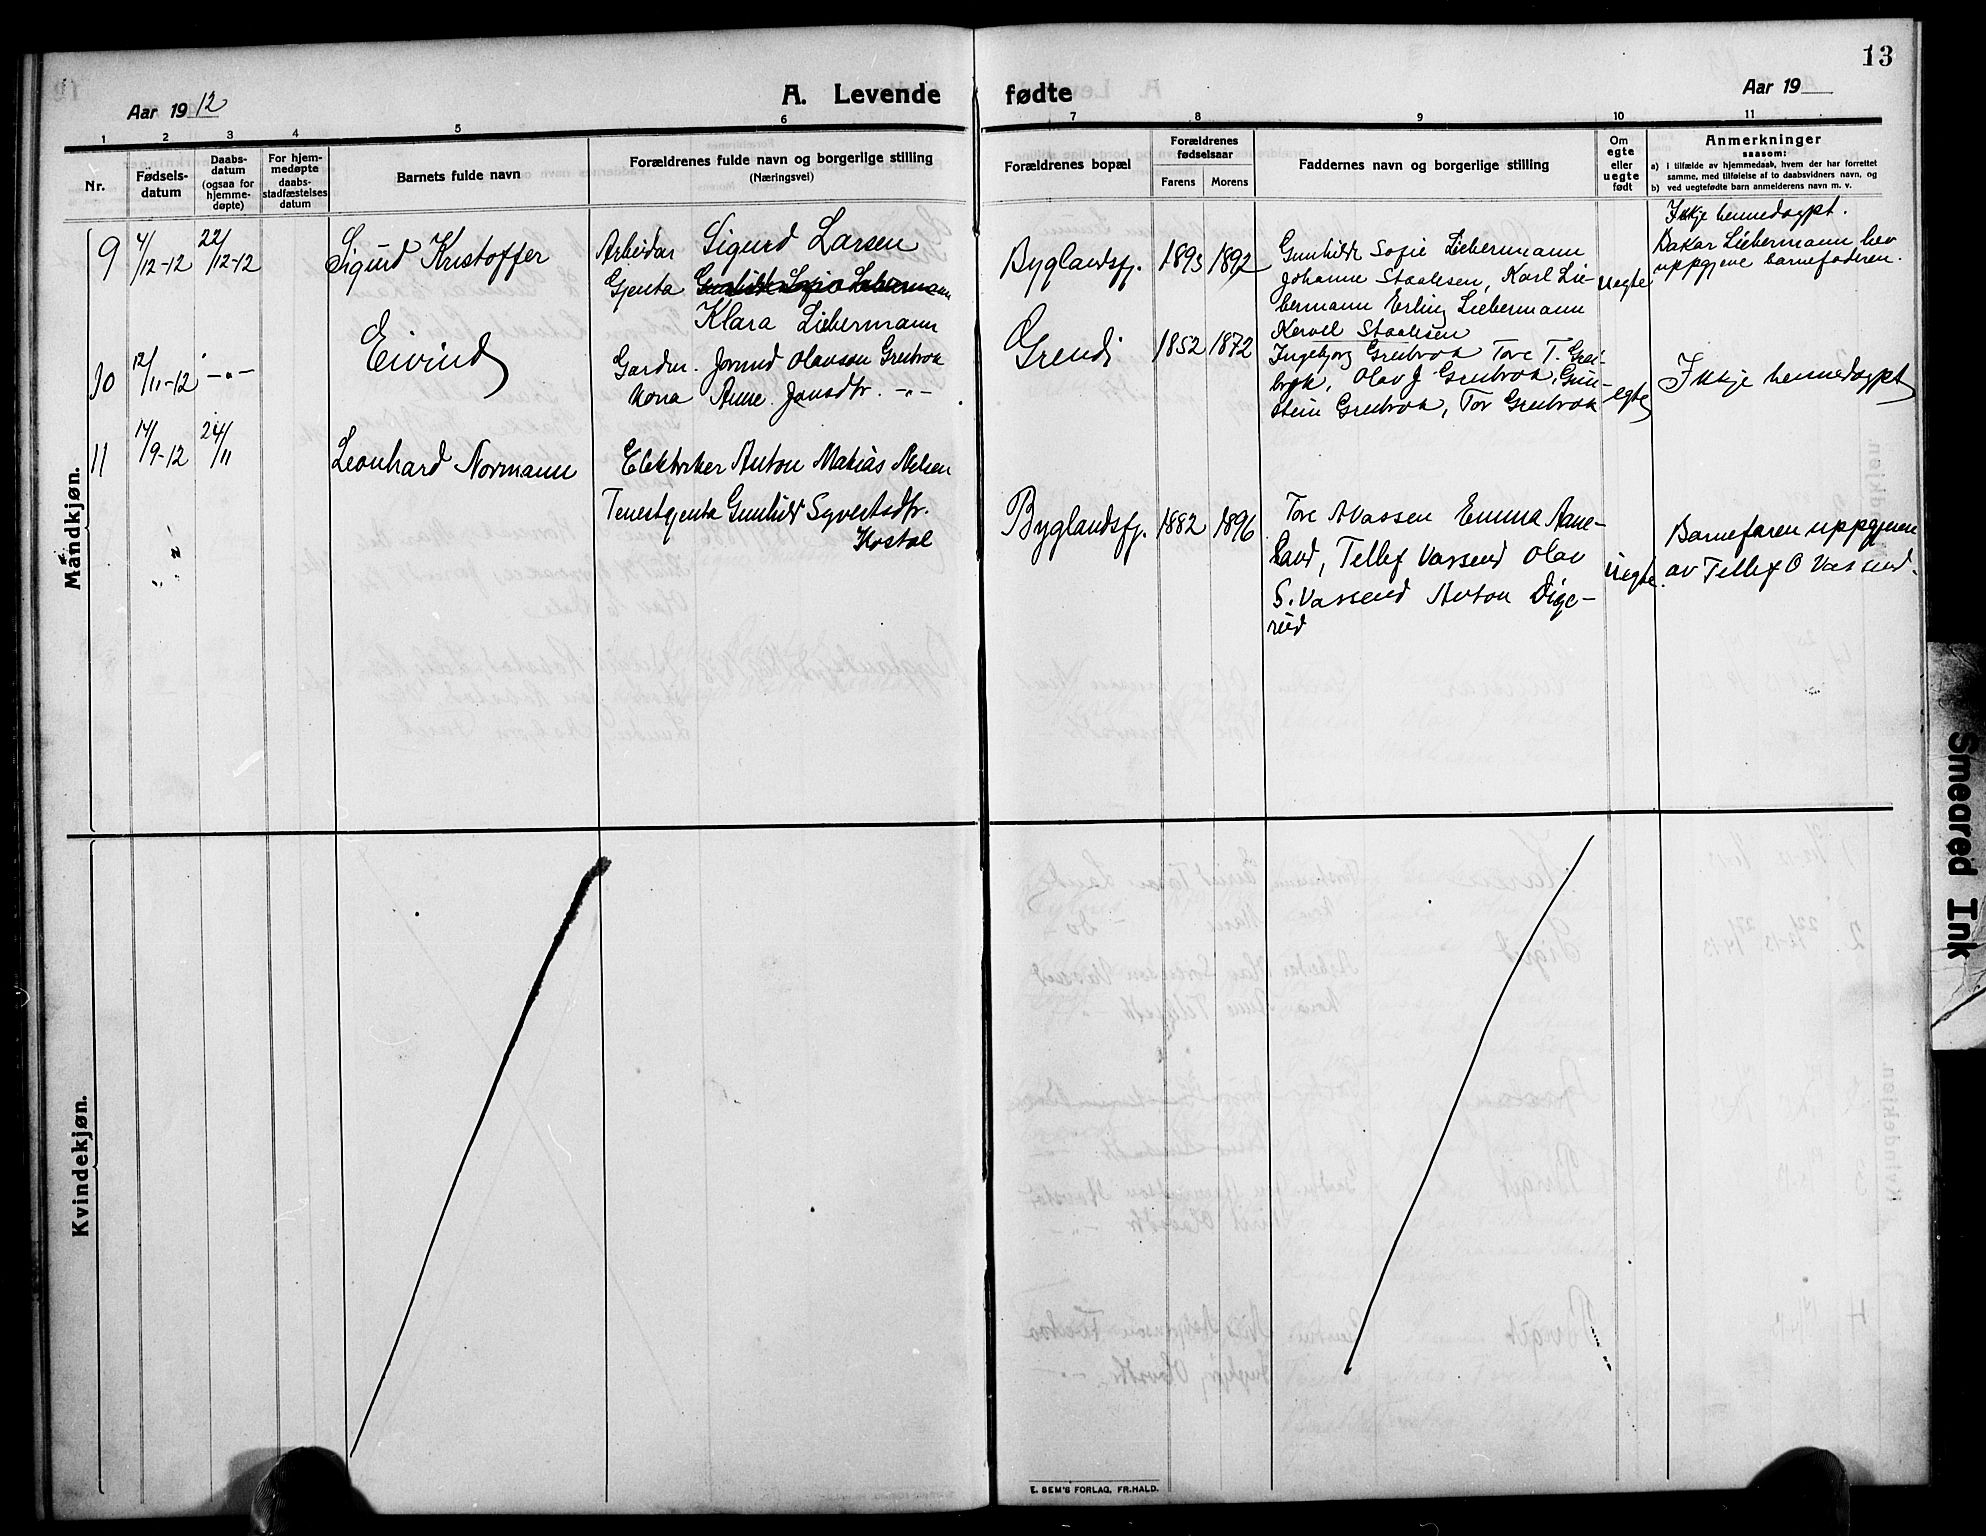 13
Aar 1912
A. Levende fødte
Aar 19
1 2 3 4 5 6 7 8 9 10 11
Nr.
Fødsels-
datum
Daabs-
datum
(ogsaa for
hjemme-
døpte)
For hjem-
medøpte
daabs-
stadfæstelses
datum
Barnets fulde navn
Forældrenes fulde navn og borgerlige stilling
(Næringsvei)
Forældrenes bopæl
Forældrenes
fødselsaar
Farens Morens
Faddernes navn og borgerlige stilling
Om
egte
eller
uegte
født
Anmerkninger
saasom:
a) i tilfælde av hjemmedaab, hvem der har forrettet
samme, med tilføielse af to daabsvidners navn, og
b) ved uegtefødte barn anmelderens navn m. v.
Mandkjøn.
9
4/12-12
22/12-12
Sigurd Kristoffer
Arbeidar Sigurd Larsen
Gjenta Gunhilde Sofie Liebermann
Klara Liebermann
Byglandsfj.
1893 1892
Gunhilde Sofie Liebermann
Johanne Staalesen, Karl Lie-
bermann Erling Liebermann
Staalesen
uegte
Ikkje heimedøypt.
Liebermann hev
uppgjeve barnefaderen.
10
12/11-12
-"-
Eivind
Gardm. Jorund Olavson Greibrok
Kona Anne Jonsdtr. -"-
Grendi
1852 1872
Ingebjorg Greibrok Tore T. Grei-
brok, Olav J Greibrok, Gun-
stein Greibrok, Tor Greibrok
egte
Ikkje heimedøypt
11
14/9-12
24/11
Leonhard Normann
Elektriker Anton Matias Nelsen
Tenestgjenta Gunhild Syvertsdtr.
Byglandsfj.
1882 1896
Tore Vassen Emma Aane-
land, Tellef Vassend Olav
S. Vassend Anton Dige-
rud
Uegte.
Barnefaren uppgjeven
av Tellef O Vassend.
Kvindekjøn.
E. SEM'S FORLAG, FR.HALD.
Smeared Ink